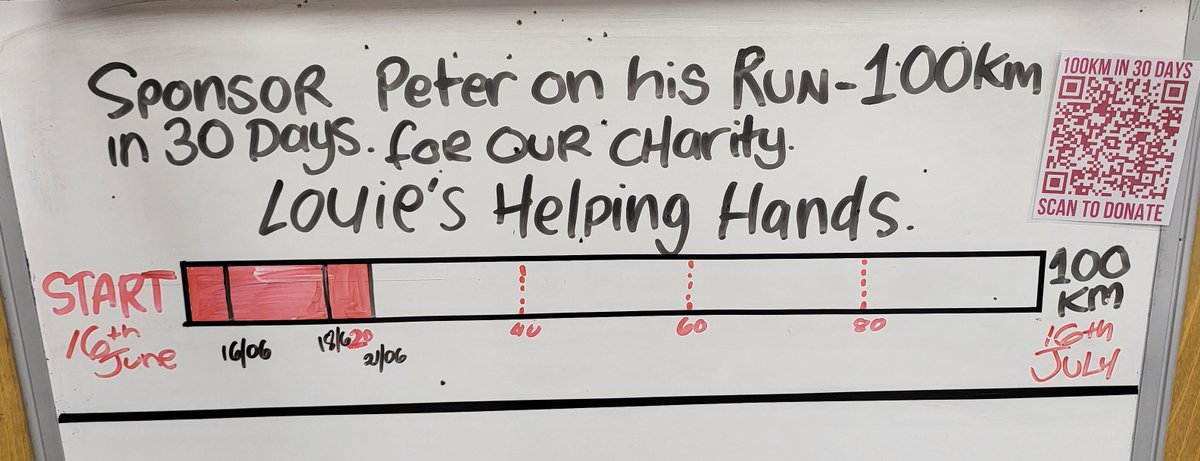 SPONSOR Peter on his RUN-100Km
in 30 Days. for OUR CHarity.
Louie's Helping Hands.
100KM IN 30 DAYS
SCAN TO DONATE
START
16th June
16/06
18/6
20
21/06
40
60
80
100 KM
16th JULY